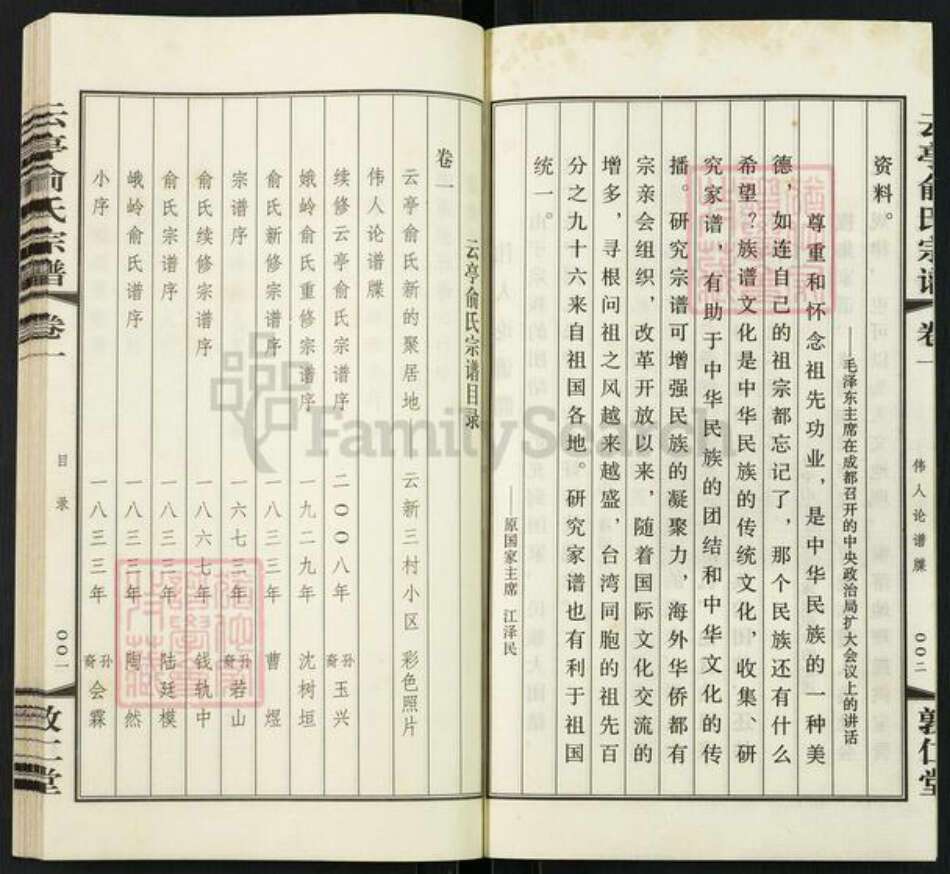 云亭俞氏宗谱
卷一
伟人论谱牒
〇〇二
敦仁堂
资料。
——毛泽东主席在成都召开的中央政治局扩大会议上的讲话
尊重和怀念祖先功业，是中华民族的一种美
德，如连自己的祖宗都忘记了，那个民族还有什么
希望？族谱文化是中华民族的传统文化，收集、研
究家谱，有助于中华民族的团结和中华文化的传
播。研究宗谱可增强民族的凝聚力，海外华侨都有
宗亲会组织，改革开放以来，随着国际文化交流的
增多，寻根问祖之风越来越盛，台湾同胞的祖先百
分之九十六来自祖国各地。研究家谱也有利于祖国
统一。
——原国家主席 江泽民
云亭俞氏宗谱目录
卷一
云亭俞氏新的聚居地 云新三村小区 彩色照片
伟人论谱牒
续修云亭俞氏宗谱序 二〇〇八年 裔孙玉兴
娥岭俞氏重修宗谱序 一九二九年 沈树垣
俞氏新修宗谱序 一八三三年 曹煜
宗谱序 一六七三年 裔孙若山
俞氏续修宗谱序 一八六七年 钱轨中
俞氏宗谱序 一八三三年 陆廷模
峨岭俞氏谱序 一八三三年 陶然
小序 一八三三年 裔孙会霖
云亭俞氏宗谱
卷一
目录
〇〇一
敦仁堂
FamilySearch